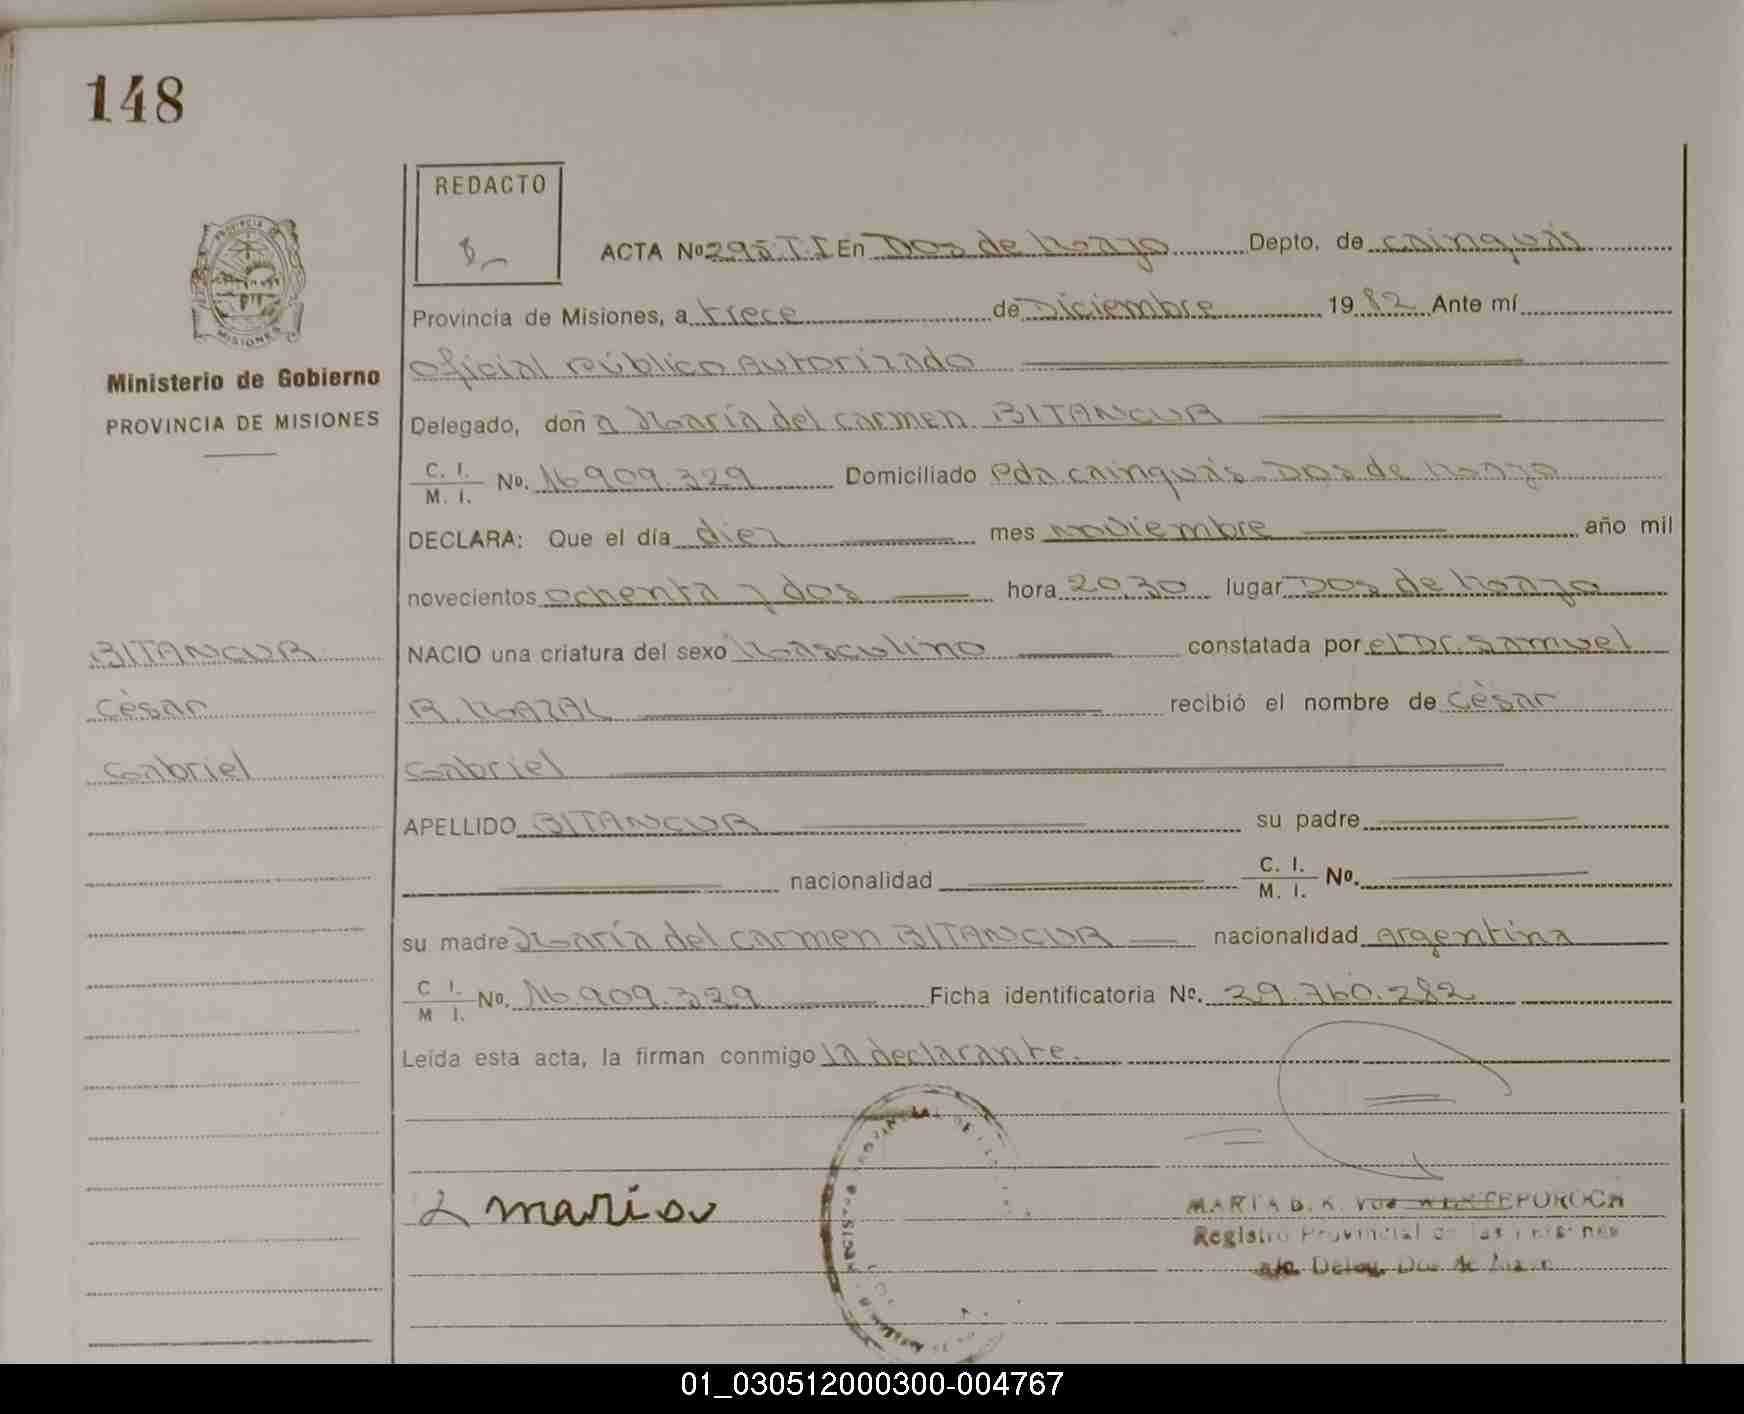 148
REDACTO
ACTA Nº 295.T.I En Dos de Mayo Depto. de Cainguás
Provincia de Misiones, a trece de Diciembre 1982 Ante mí
Oficial Público Autorizado
Ministerio de Gobierno
PROVINCIA DE MISIONES
Delegado, doña María del Carmen BITANCUR
C. I.
M. I. Nº. 16.909.329 Domiciliado Pda Cainguás - Dos de Mayo
DECLARA: Que el día diez mes noviembre año mil
novecientos ochenta y dos hora 20,30 lugar Dos de Mayo
BITANCUR
NACIO una criatura del sexo Masculino constatada por el Dr. Samuel
Cèsar
A. MAZAL recibió el nombre de Cèsar
Gabriel
Gabriel
APELLIDO BITANCUR su padre
nacionalidad C. I.
M. I. Nº.
su madre María del Carmen BITANCUR nacionalidad Argentina
C I.
M I. Nº. 16.909.329 Ficha identificatoria Nº. 29.760.282
Leída esta acta, la firman conmigo la declarante.
MARIA B. K.
Registro Provincial de las Personas
Deleg. Dos de Mayo
01_030512000300-004767